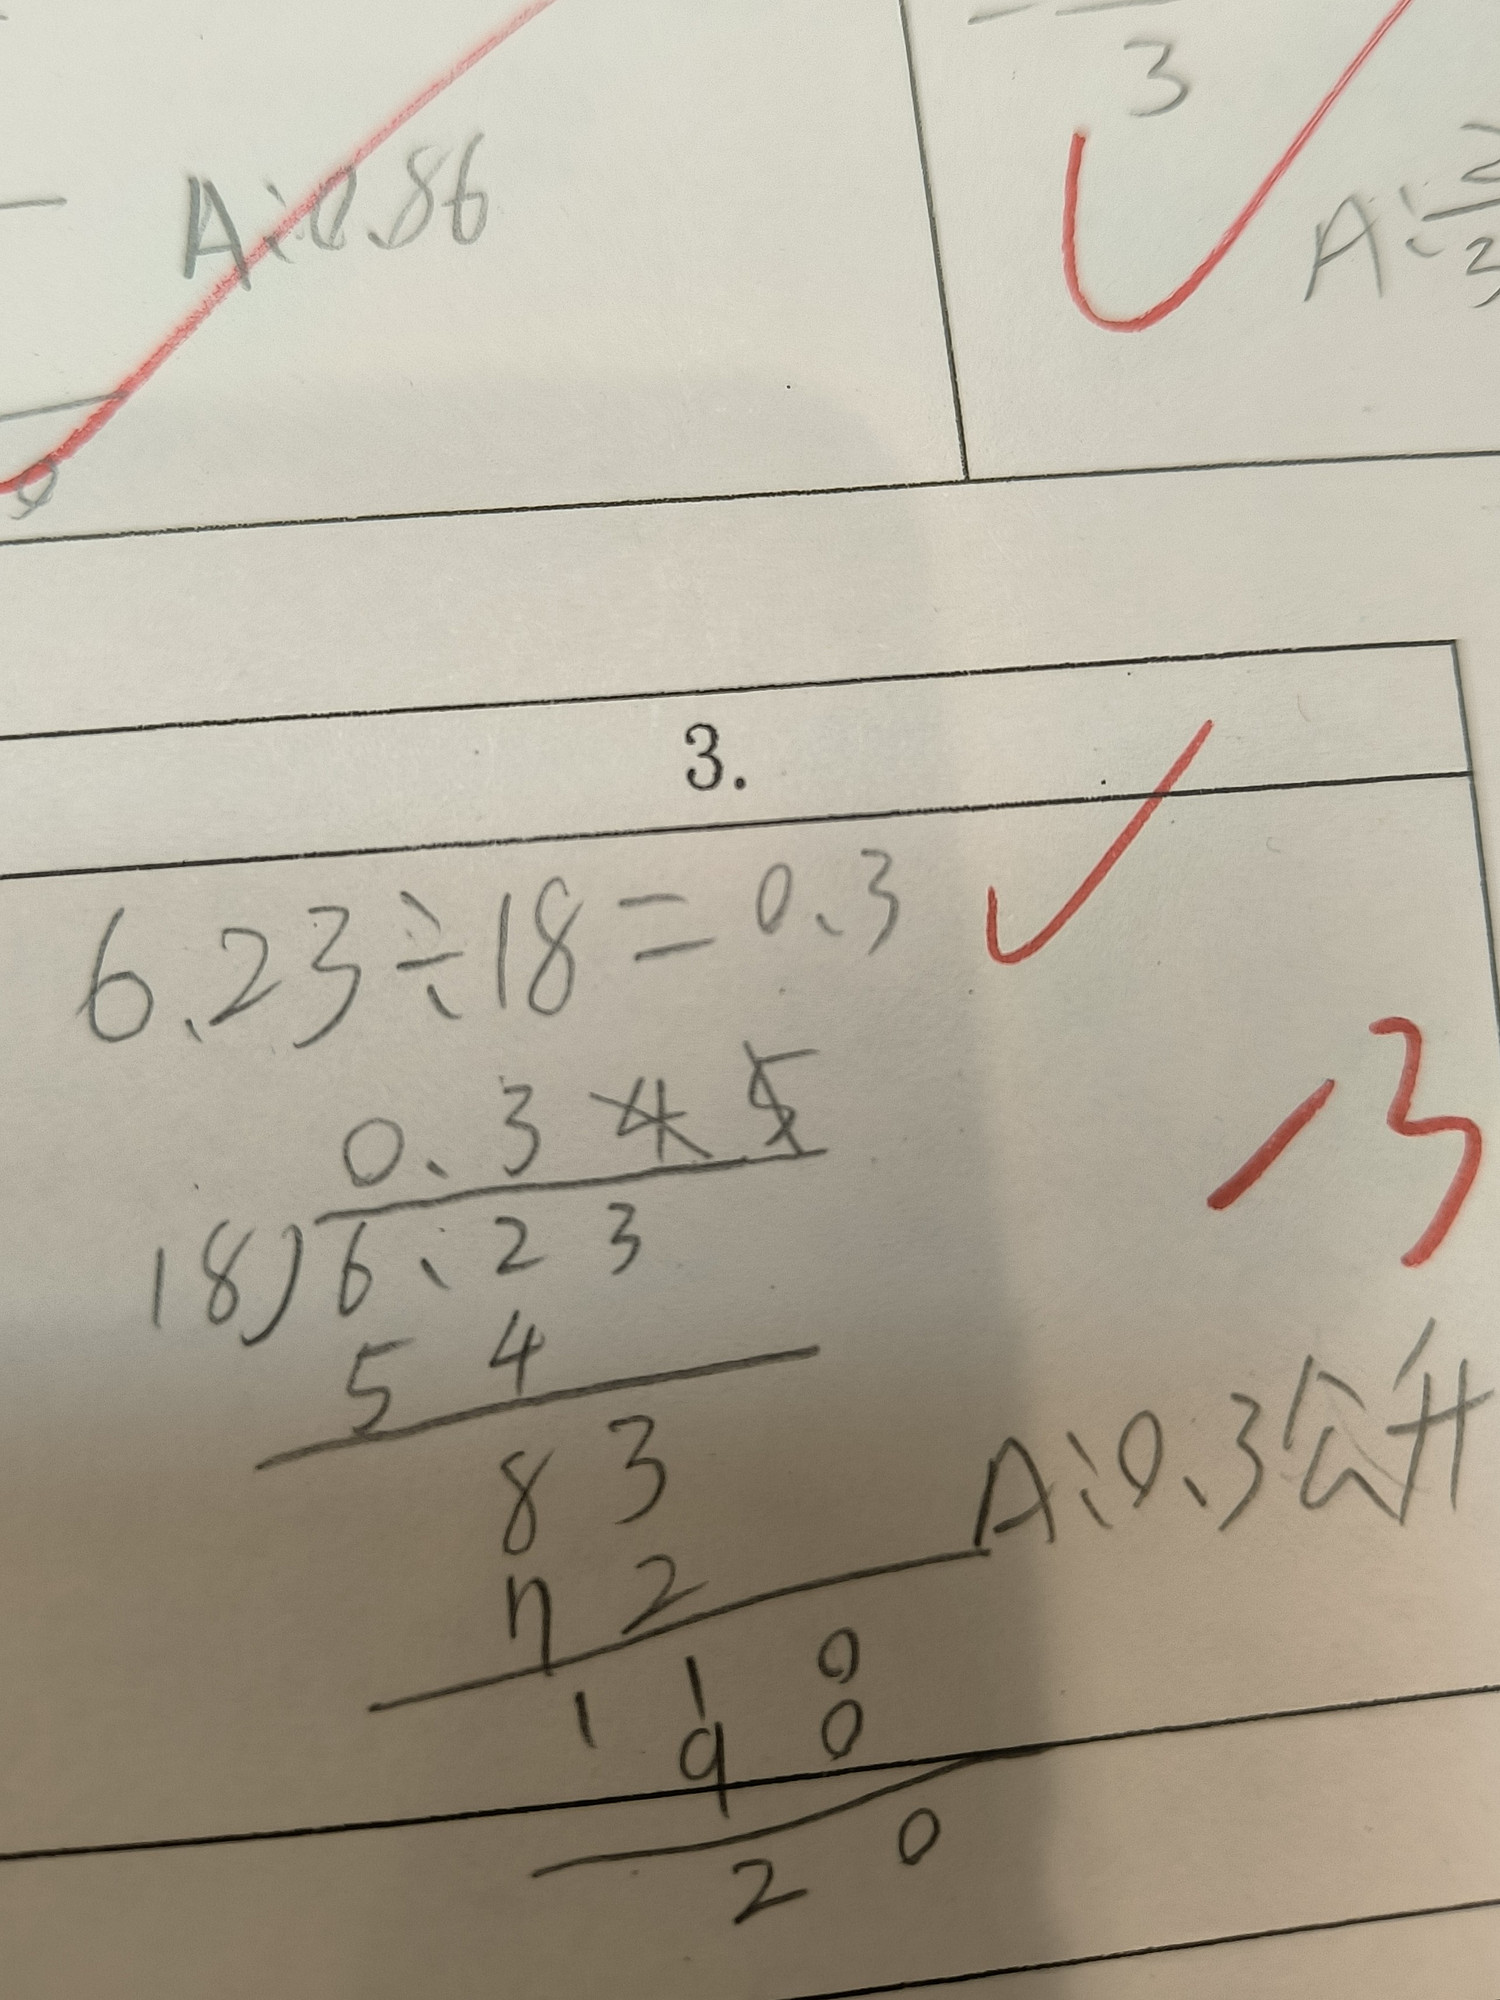 3
A:0.86
A:2/3
0
3.
6.23÷18=0.3
0.345
18)6.23
54
83
72
110
90
20
-3
A:0.3公升